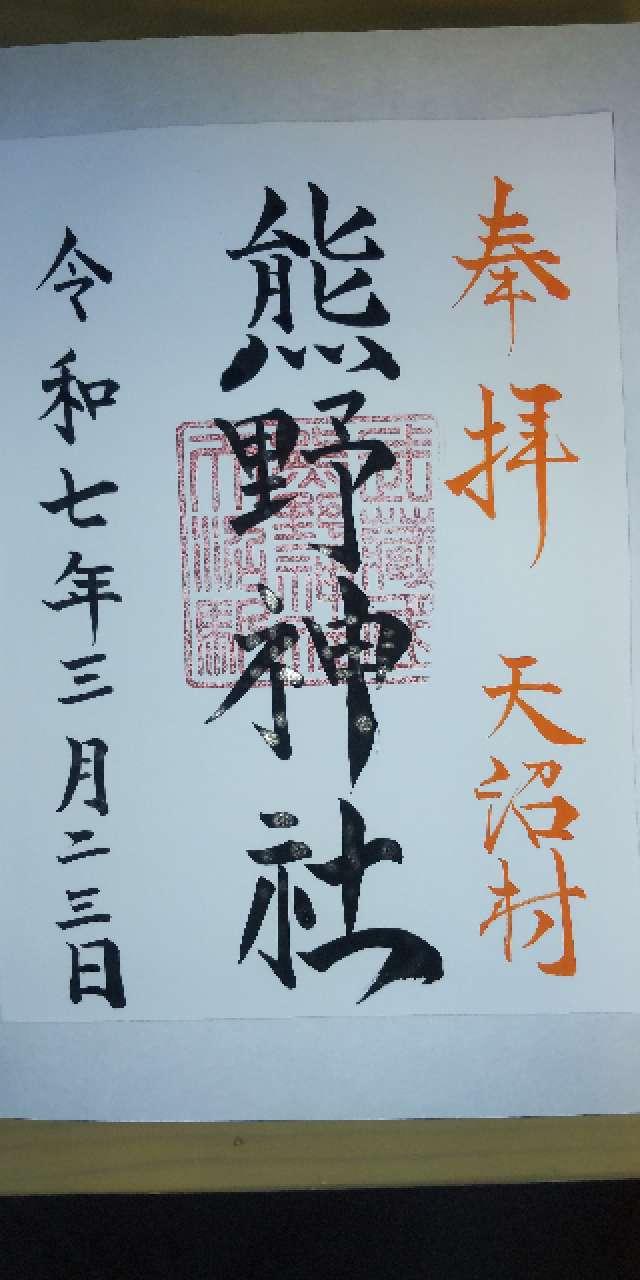 奉拝 天沼村
熊野神社
令和七年三月二三日